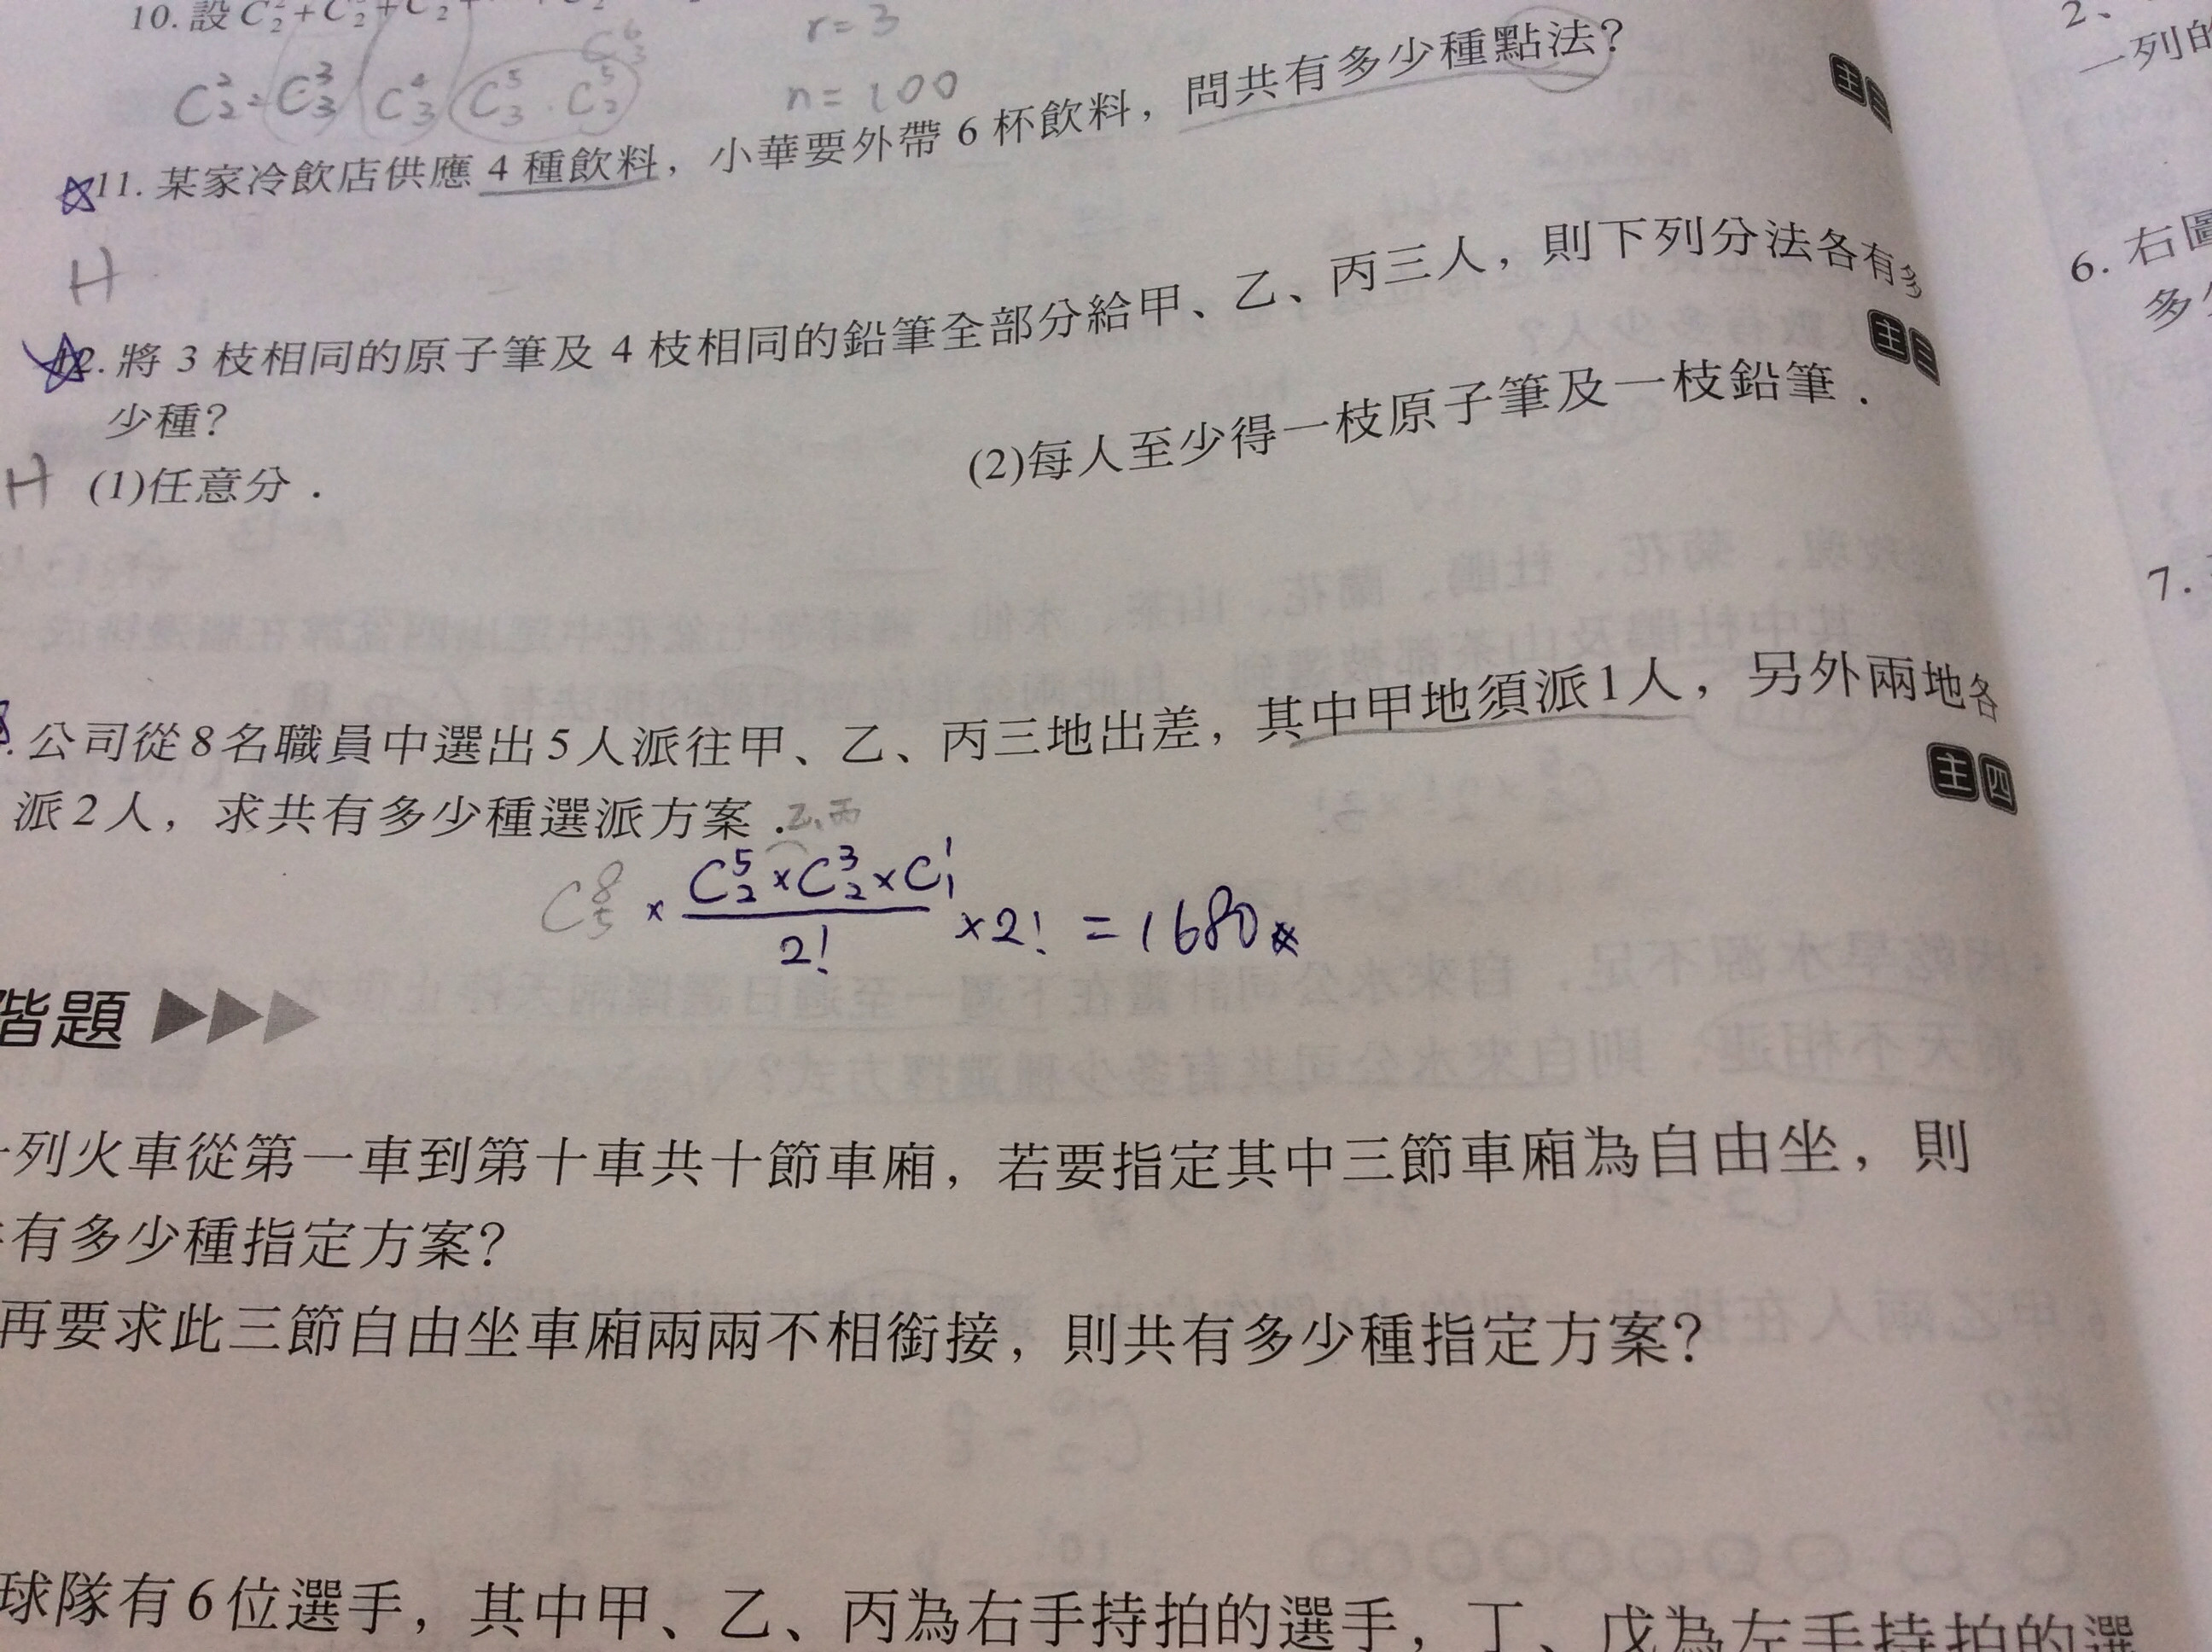 10. 設 C₂² + C₂³ + C₂
r=3
n=100
C₂² = C₃³ C₃⁴ C₃⁵ · C₂⁵
C₃⁶
11. 某家冷飲店供應 4 種飲料，小華要外帶 6 杯飲料，問共有多少種點法？
主
H
12. 將 3 枝相同的原子筆及 4 枝相同的鉛筆全部分給甲、乙、丙三人，則下列分法各有多
少種？
主三
H (1)任意分． (2)每人至少得一枝原子筆及一枝鉛筆．
. 公司從 8 名職員中選出 5 人派往甲、乙、丙三地出差，其中甲地須派 1 人，另外兩地各
派 2 人，求共有多少種選派方案．
主四
乙、丙
C₅⁸ × (C₂⁵ × C₂³ × C₁¹) / 2! × 2! = 1680
階題
列火車從第一車到第十車共十節車廂，若要指定其中三節車廂為自由坐，則
有多少種指定方案？
再要求此三節自由坐車廂兩兩不相銜接，則共有多少種指定方案？
球隊有 6 位選手，其中甲、乙、丙為右手持拍的選手，丁、戊為左手持拍的選
2、
一列的
6. 右圖
多
7.